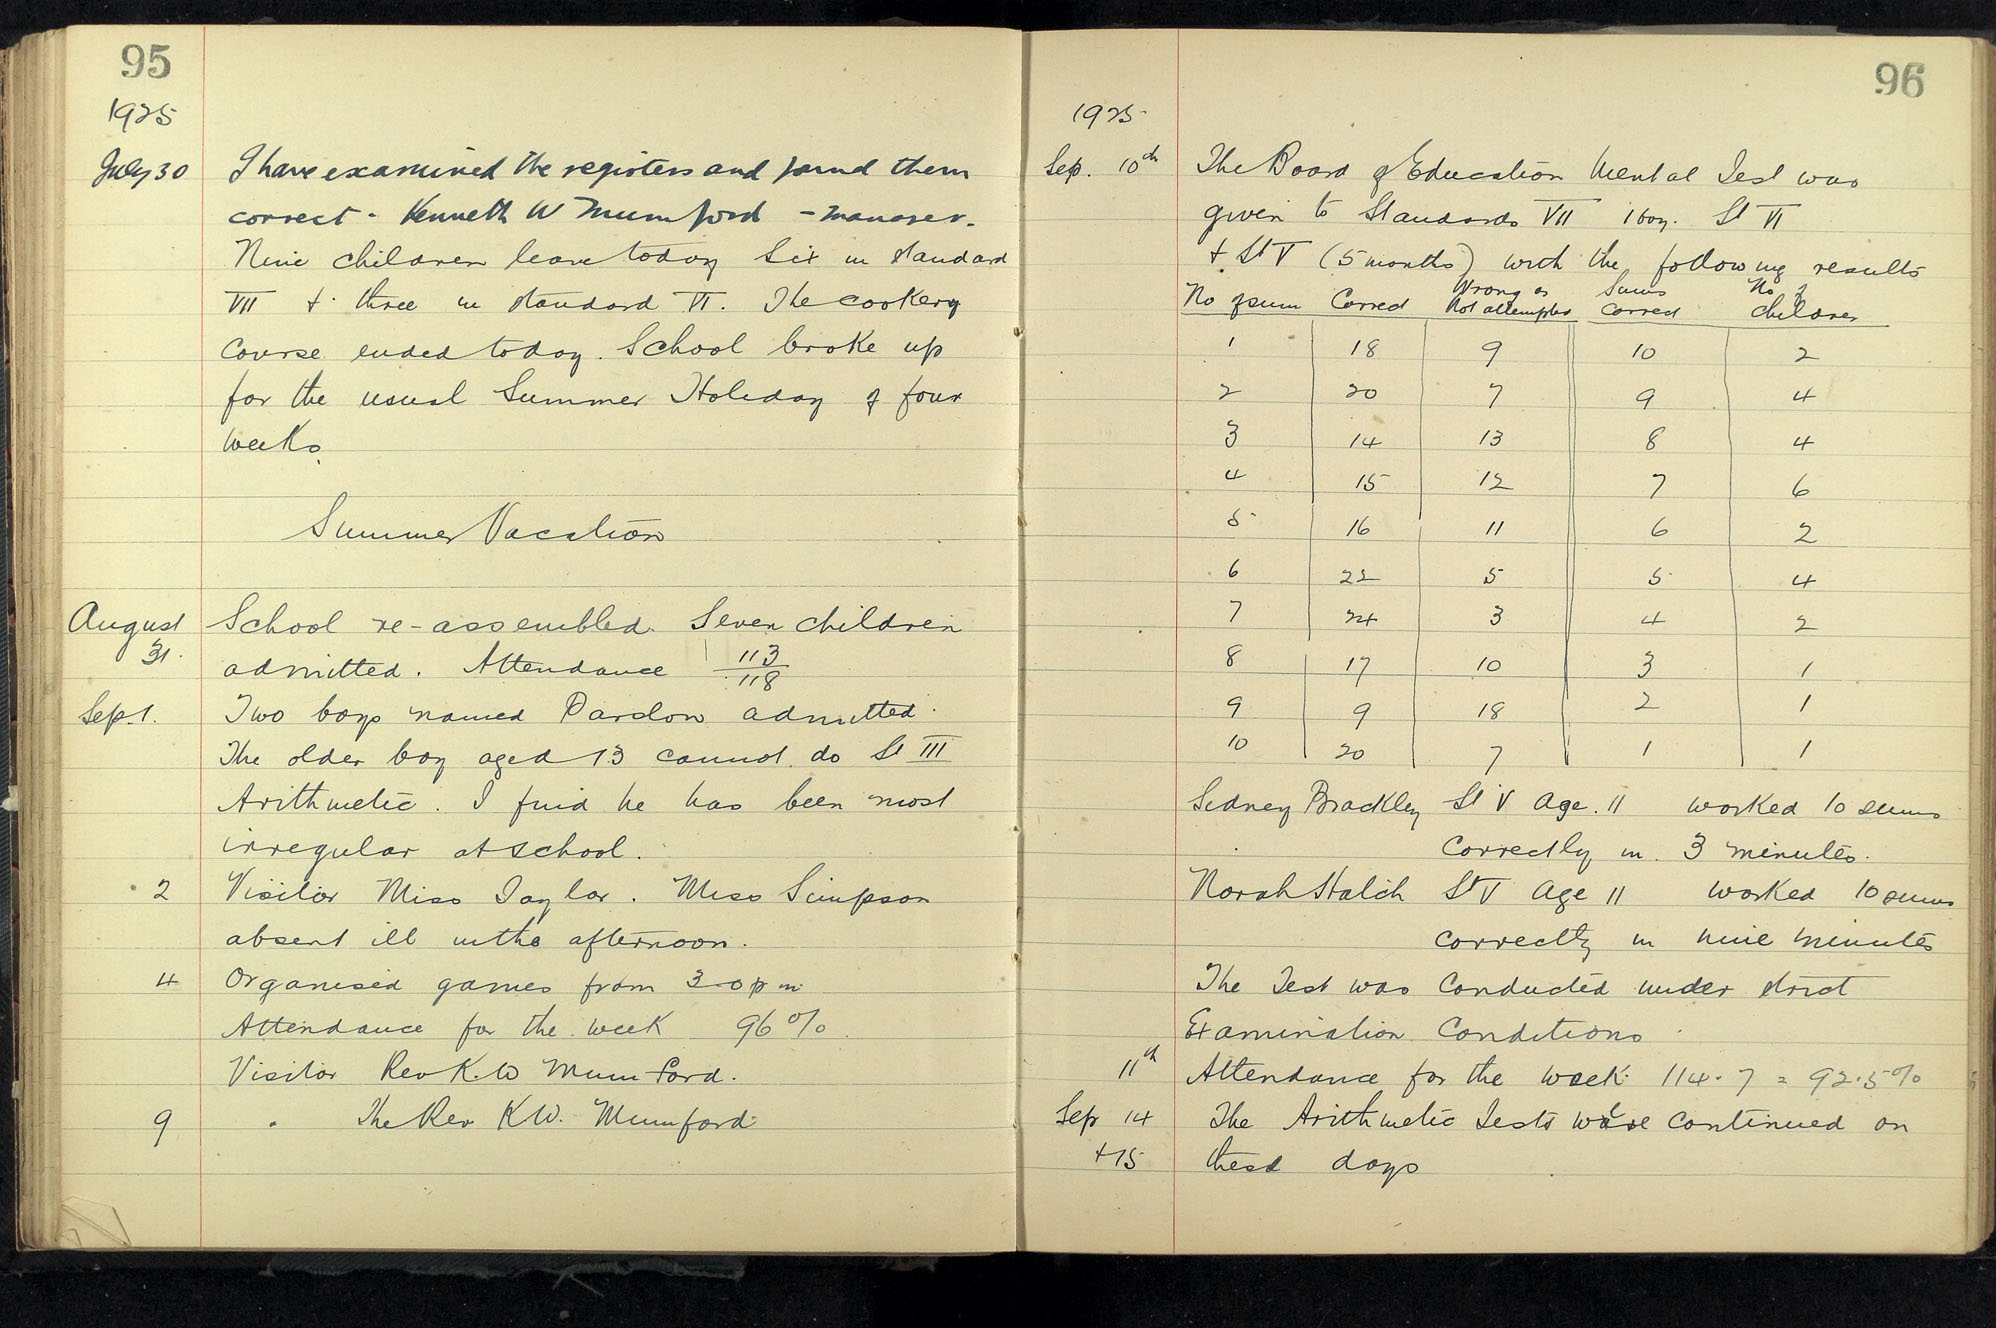 95
1925
July 30 I have examined the registers and found them
correct - Kenneth W Mumford - manager.
Nine children leave today Six in standard
VII + three in standard VI. The cookery
Course ended today. School broke up
for the usual Summer Holiday of four
weeks.
Summer Vacation
August School re-assembled. Seven children
31. admitted. Attendance 113/118
Sep. 1. Two boys named Pardon admitted.
The older boy aged 13 cannot do St III
Arithmetic. I find he has been most
irregular at school.
2 Visitor Miss Taylor. Miss Simpson
absent ill in the afternoon.
4 Organised games from 3-0 pm
Attendance for the week 96%
Visitor Rev K. W Mumford.
9 " The Rev K W. Mumford
96
1925
Sep. 10th The Board of Education Mental Test was
given to Standards VII 1 boy. St VI
+ St V (5 months) with the following results
No of sum Correct Wrong or Not attempted Sums Correct No of Children
1 18 9 10 2
2 20 7 9 4
3 14 13 8 4
4 15 12 7 6
5 16 11 6 2
6 22 5 5 4
7 24 3 4 2
8 17 10 3 1
9 9 18 2 1
10 20 7 1 1
Sidney Brackley St V Age. 11 worked 10 sums
correctly in 3 minutes.
Norah Hatch St V Age 11 worked 10 sums
correctly in nine minutes
The Test was Conducted under strict
Examination Conditions.
11th Attendance for the week 114.7 = 92.5%
Sep 14 The Arithmetic Tests were continued on
+ 15 these days